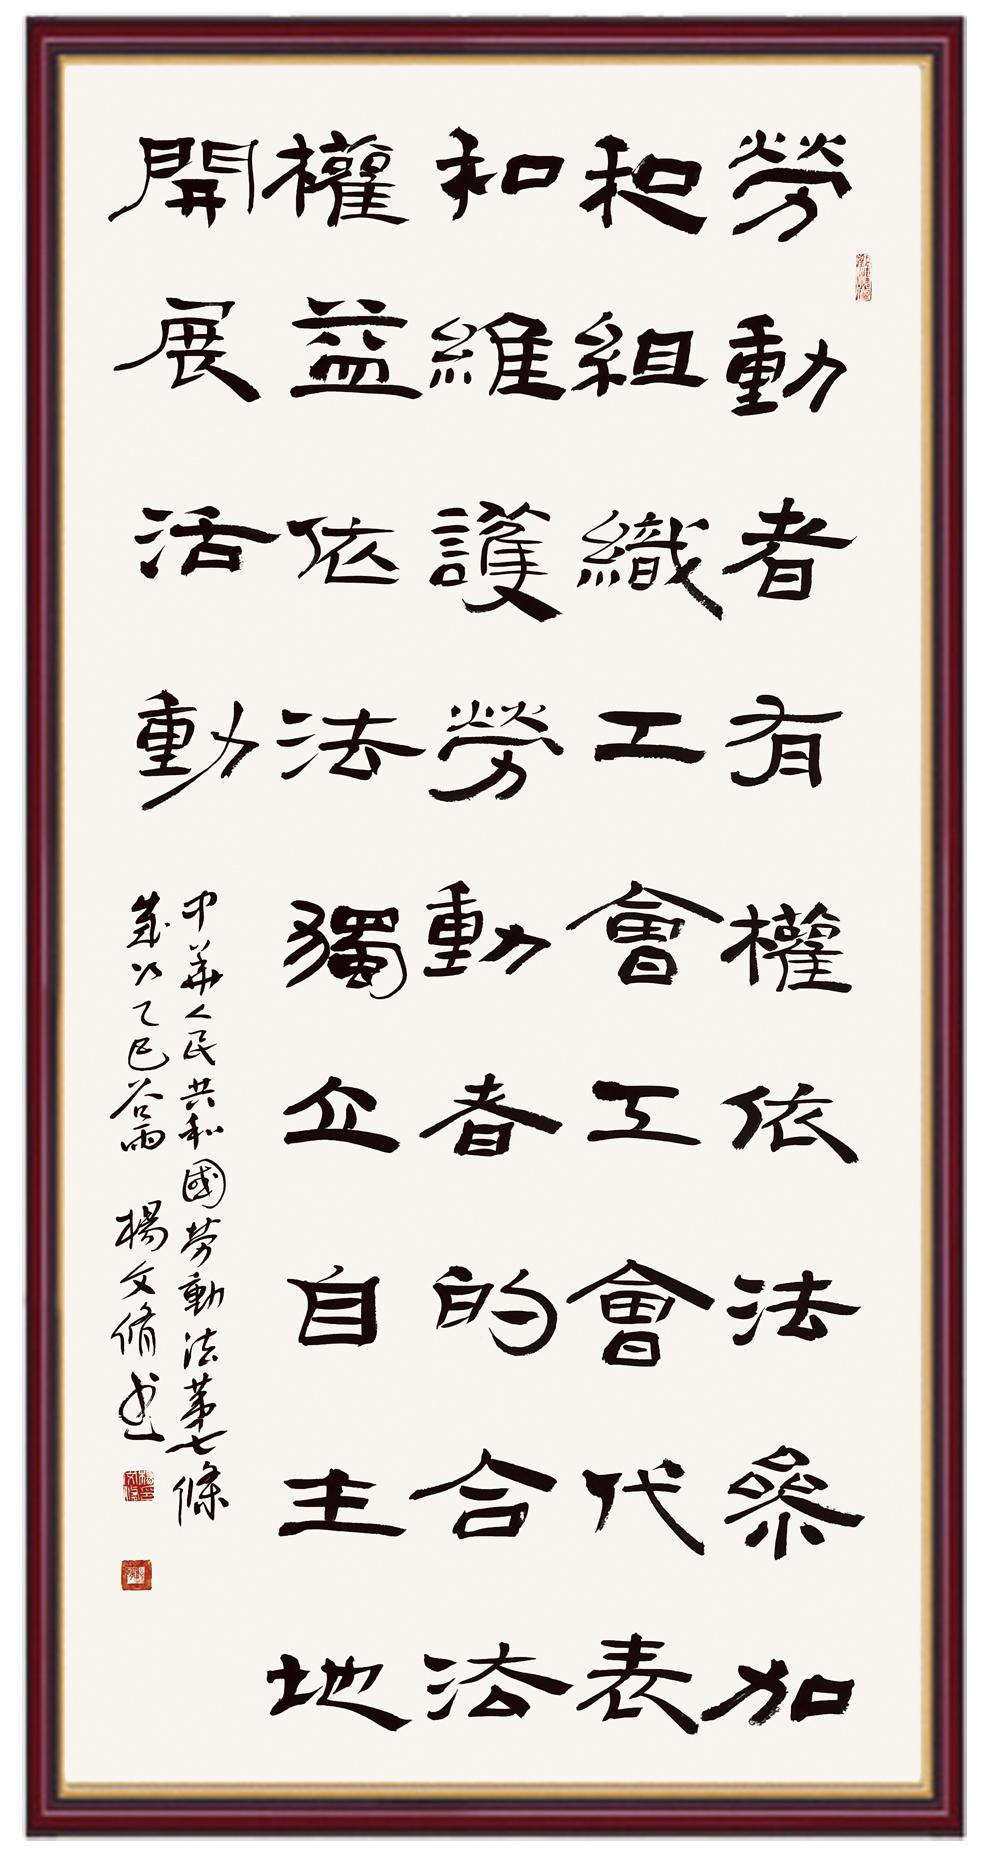 勞動者有權依法參加
和組織工會工會代表
和維護勞動者的合法
權益依法獨立自主地
開展活動
中華人民共和國勞動法第七條
歲次乙巳谷雨 楊文脩書